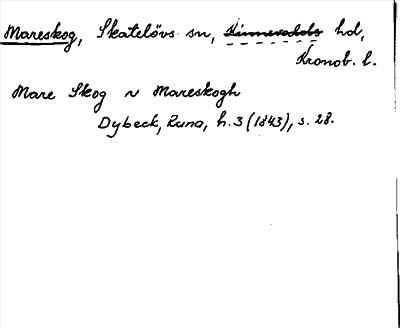 Mareskog, Skatelövs sn, Kinnevalds hd,
Kronob. l.
Mare Skog ~ Mareskogh
Dybeck, Runa, h. 3 (1843), s. 28.